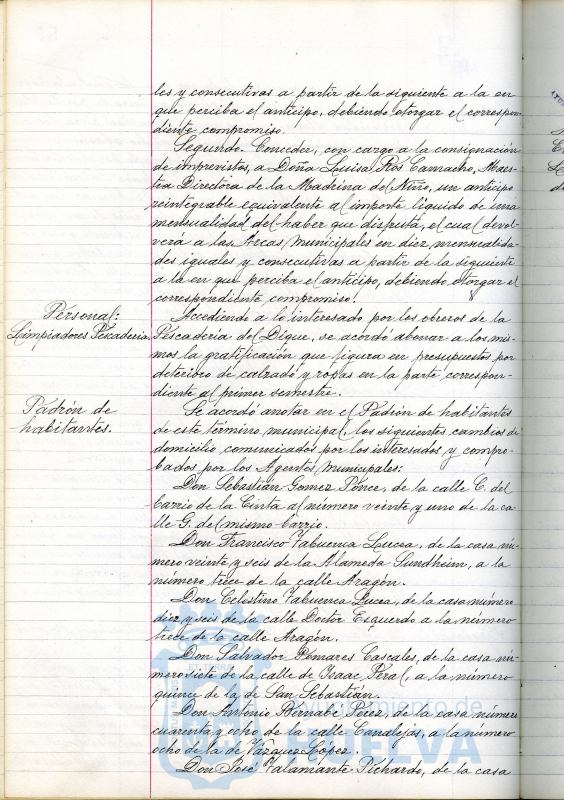 les y consecutivas a partir de la siguiente a la en
que perciba el anticipo, debiendo otorgar el correspon-
diente compromiso.
Segundo. Conceder, con cargo a la consignación
de imprevistos, a Doña Luisa Ros Camacho, Maes-
tra Directora de la Madrina del Niño, un anticipo
reintegrable equivalente al importe líquido de una
mensualidad del haber que disfruta, el cual devol-
verá a las Arcas Municipales en diez mensualida-
des iguales y consecutivas a partir de la siguiente
a la en que perciba el anticipo, debiendo otorgar el
correspondiente compromiso.
Personal:
Limpiadores Pescadería.
Accediendo a lo interesado por los obreros de la
Pescadería del Dique, se acordó abonar a los mis-
mos la gratificación que figura en presupuestos por
deterioro de calzado y ropas en la parte correspon-
diente al primer semestre.
Padrón de
habitantes.
Se acordó anotar en el Padrón de habitantes
de este término municipal, los siguientes cambios de
domicilio comunicados por los interesados y compro-
bados por los Agentes Municipales:
Don Sebastián Gomez Ponce, de la calle C. del
barrio de la Cinta al número veinte y uno de la ca-
lle G. del mismo barrio.
Don Francisco Fabuenca Lucea, de la casa nú-
mero veinte y seis de la Alameda Sundheim, a la
número trece de la calle Aragón.
Don Celestino Fabuenca Lucea, de la casa número
diez y seis de la calle Doctor Esquerdo a la número
trece de la calle Aragón.
Don Salvador Pomares Cascales, de la casa nú-
mero siete de la calle de Isaac Peral, a la número
quince de la de San Sebastián.
Don Antonio Bernabé Pérez, de la casa número
cuarenta y ocho de la calle Canalejas, a la número
ocho de la de Vázquez López.
Don José Valamante Pichardo, de la casa
Ayuntamiento de
HUELVA